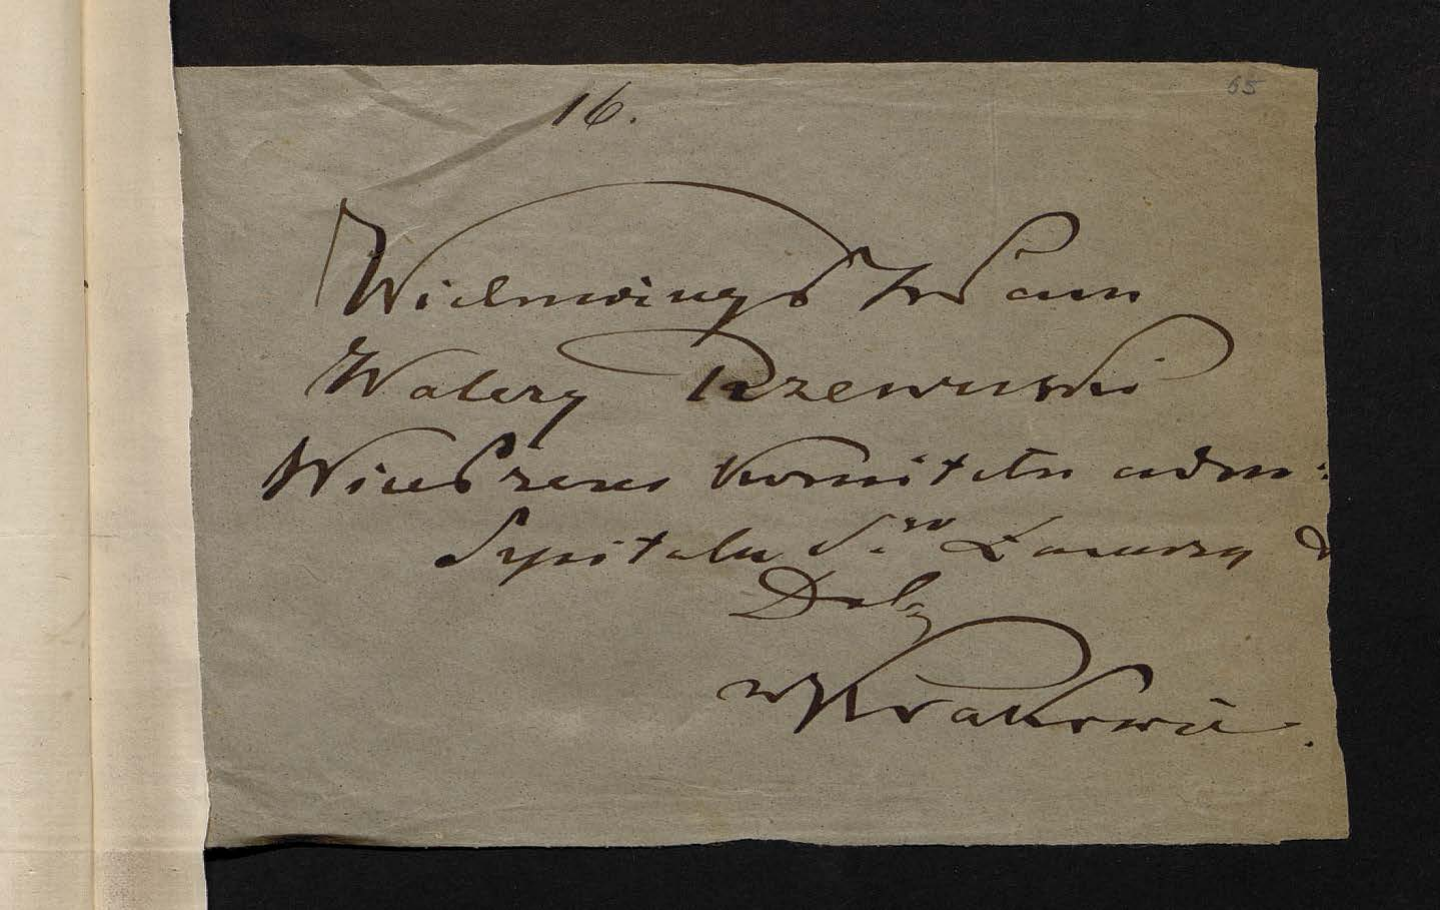 65
16.
Wielmożny Pan
Walery Rzewuski
Wiceprezes Komitetu adm:
Szpitala S.go Łazarza &
Dobr
w Krakowie.